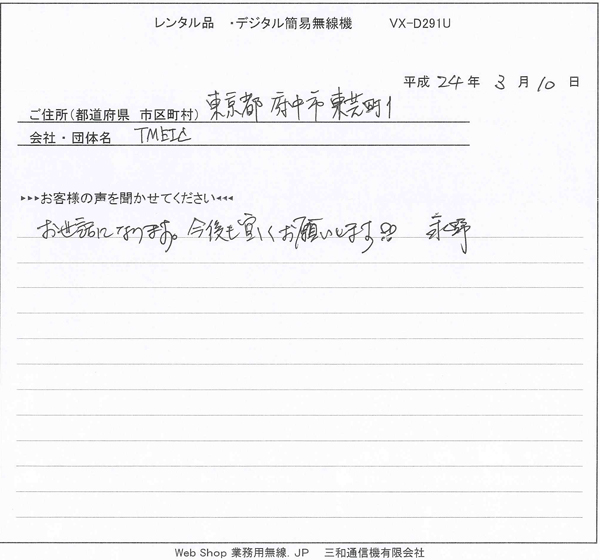 レンタル品 ・デジタル簡易無線機 VX-D291U
平成 24 年 3 月 10 日
ご住所(都道府県 市区町村) 東京都 府中市 東芝町1
会社・団体名 TMEIC
▸▸▸お客様の声を聞かせてください◂◂◂
お世話になります。今後も宜しくお願いします!! 永野
Web Shop 業務用無線.JP 三和通信機有限会社